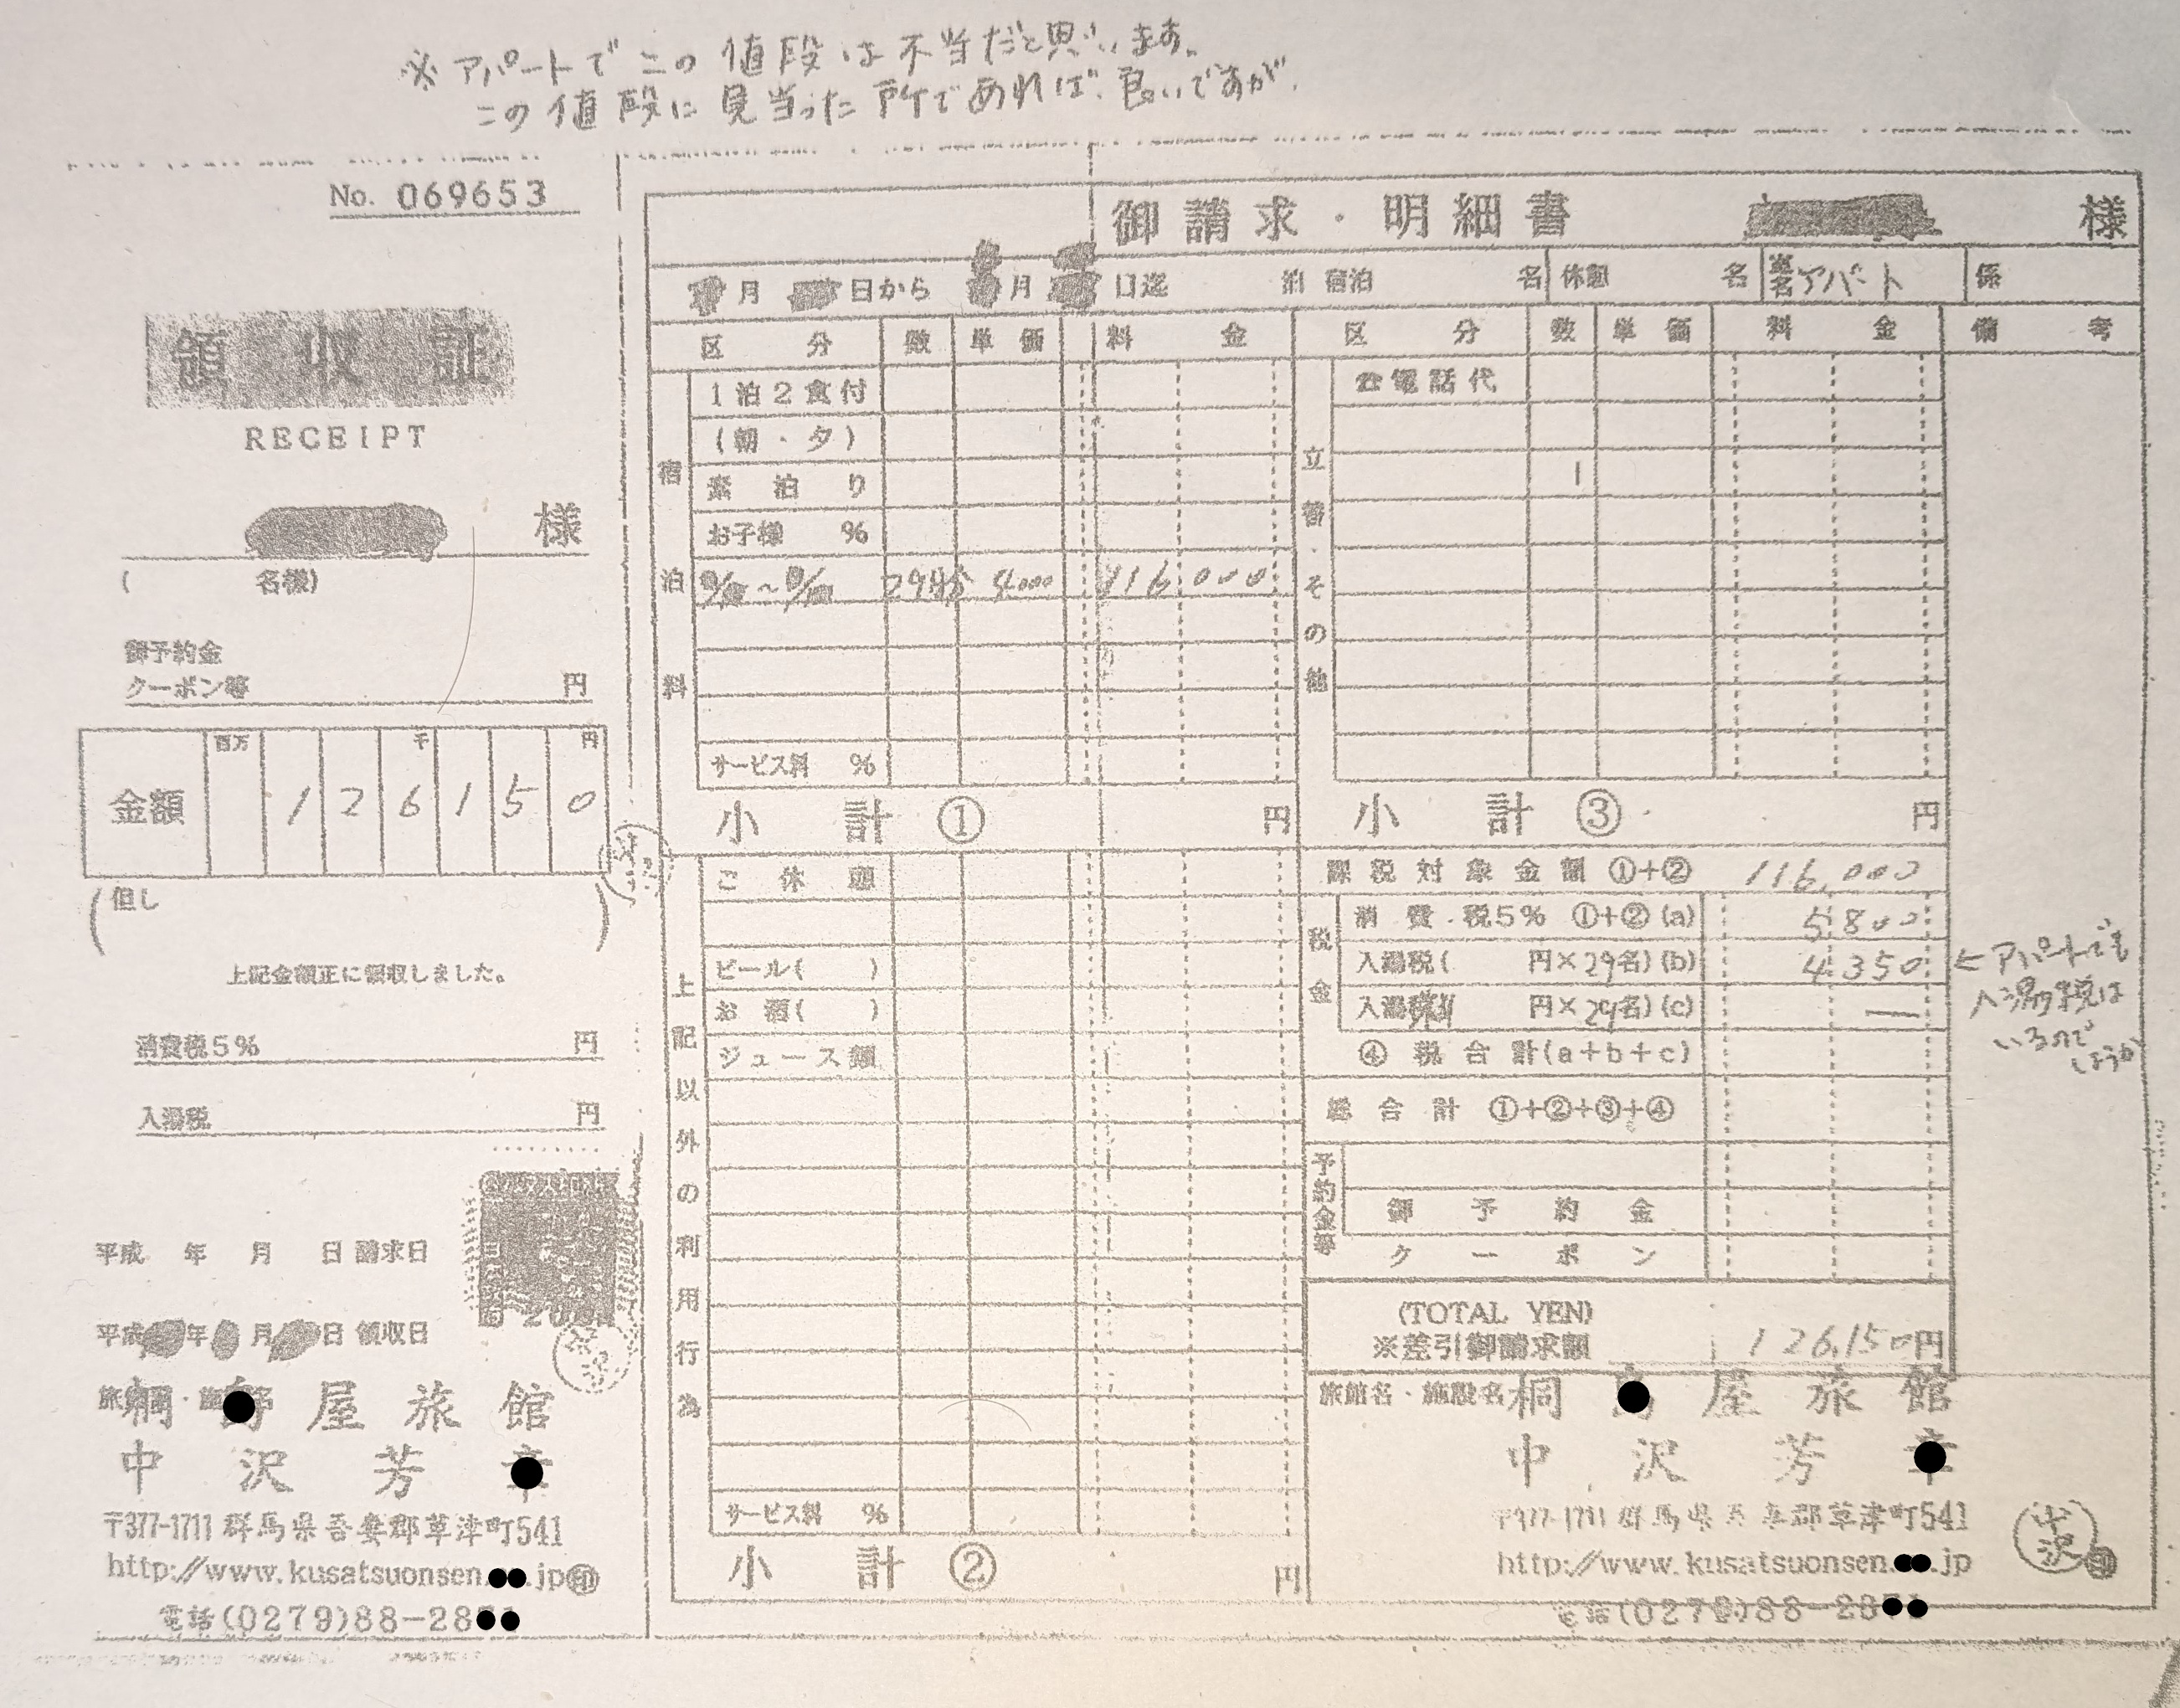 ※アパートでこの値段は不当だと思います。
この値段に見当った所であれば、良いですが、
No. 069653
領収証
RECEIPT
様
( 名様)
御予約金
クーポン等 円
百万 千 円
金額 1 2 6 1 5 0
(但し )
上記金額正に領収しました。
消費税5% 円
入湯税 円
平成 年 月 日 請求日
平成 年 月 日 領収日
屋旅館
中沢芳
〒377-1711 群馬県吾妻郡草津町541
http://www.kusatsuonsen. .jp 印
電話(0279)88-28
御請求・明細書 様
月 日から 月 日迄 泊 宿泊 名 休憩 名 室名 アパート 係
区分 数 単価 料金
宿泊料
1泊2食付
(朝・夕)
素泊り
お子様 %
/ ~ / 4000 116,000
サービス料 %
小計① 円
上記以外の利用行為
ご休憩
ビール( )
お酒( )
ジュース類
サービス料 %
小計② 円
区分 数 単価 料金 備考
立替・その他
☎電話代
小計③ 円
課税対象金額 ①+② 116,000
税金
消費税5% ①+②(a) 5800
入湯税( 円×29名)(b) 4350 ←アパートでも
入湯税は
いるので
しょうか
入湯税 円×29名)(c) —
④税合計(a+b+c)
総合計 ①+②+③+④
予約金等
御予約金
クーポン
(TOTAL YEN)
※差引御請求額 126,150円
旅館名・施設名 桐 屋旅館
中沢芳
〒377-1711 群馬県吾妻郡草津町541
http://www.kusatsuonsen. .jp
中沢 印
電話(0279)88-28